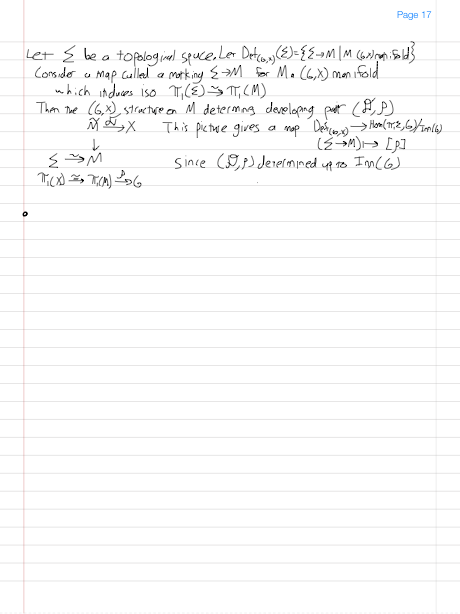 Page 17
Let Σ be a topological space. Let Def_(G,X)(Σ)={Σ→M | M (G,X) manifold}
Consider a map called a marking Σ→M for M a (G,X) manifold
which induces iso π₁(Σ) ⥲ π₁(M)
Then the (G,X) structure on M determins developing pair (𝒟, ρ)
M̃ →^𝒟 X This picture gives a map Def_(G,X) → Hom(π₁Σ, G)/Inn(G)
↓ (Σ→M) ↦ [ρ]
Σ ⥲ M Since (𝒟, ρ) determined up to Inn(G)
π₁(X) ⥲ π₁(M) →^ρ G